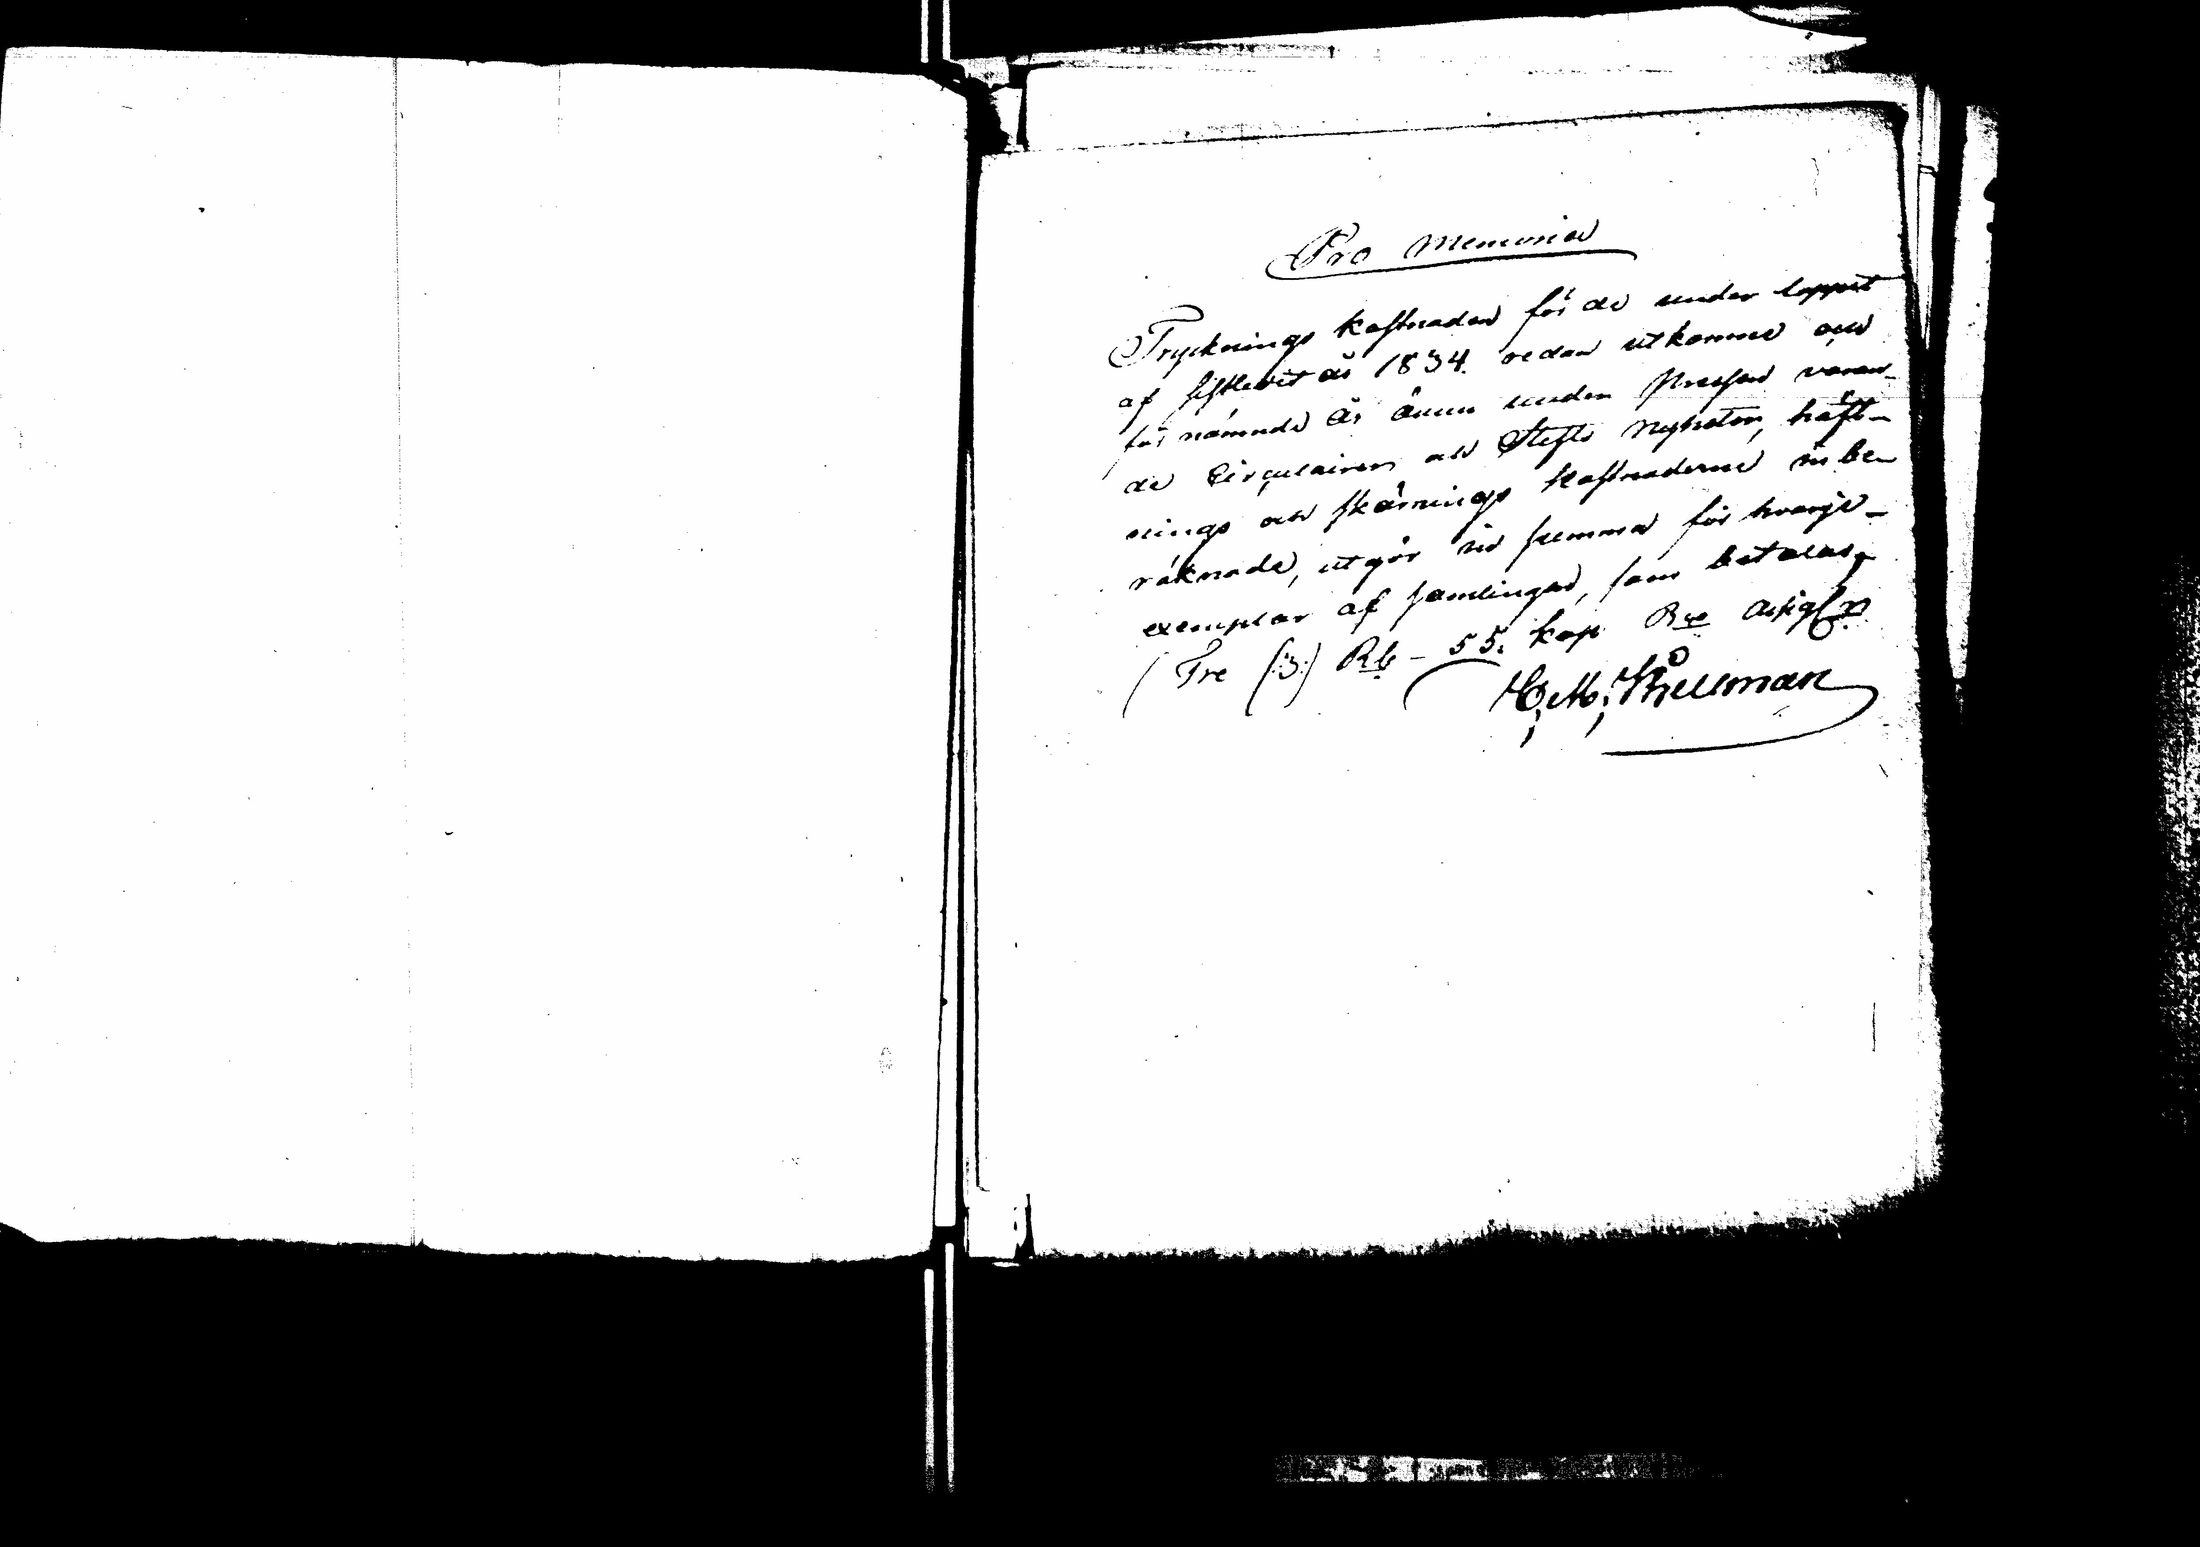 Pro Memoria
Tryknings kostnaden för de under loppet
af sistledit år 1834. redan utkomne och
för nämnde år ännu under pressen varan-
de Circulairer och Stifts Nyheter, häft-
nings och skärnings kostnaderne inbe-
räknade, utgör in summa för hvarje
exemplar af samlingen, som betalas,
Tre (:3:) Rb - 55. kop Rce Assigr